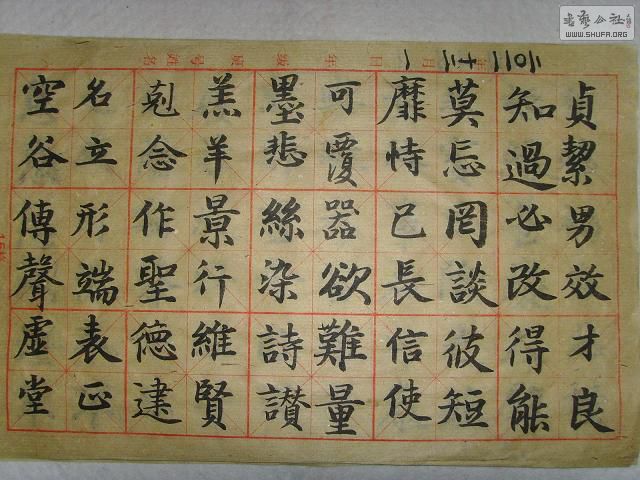 貞絜男效才良
知過必改得能
莫忘罔談彼短
靡恃己長信使
可覆器欲難量
墨悲絲染詩讃
羔羊景行維賢
剋念作聖德建
名立形端表正
空谷傳聲虛堂
月 一 日
年 级
号 姓名
書藝公社
WWW.SHUFA.ORG